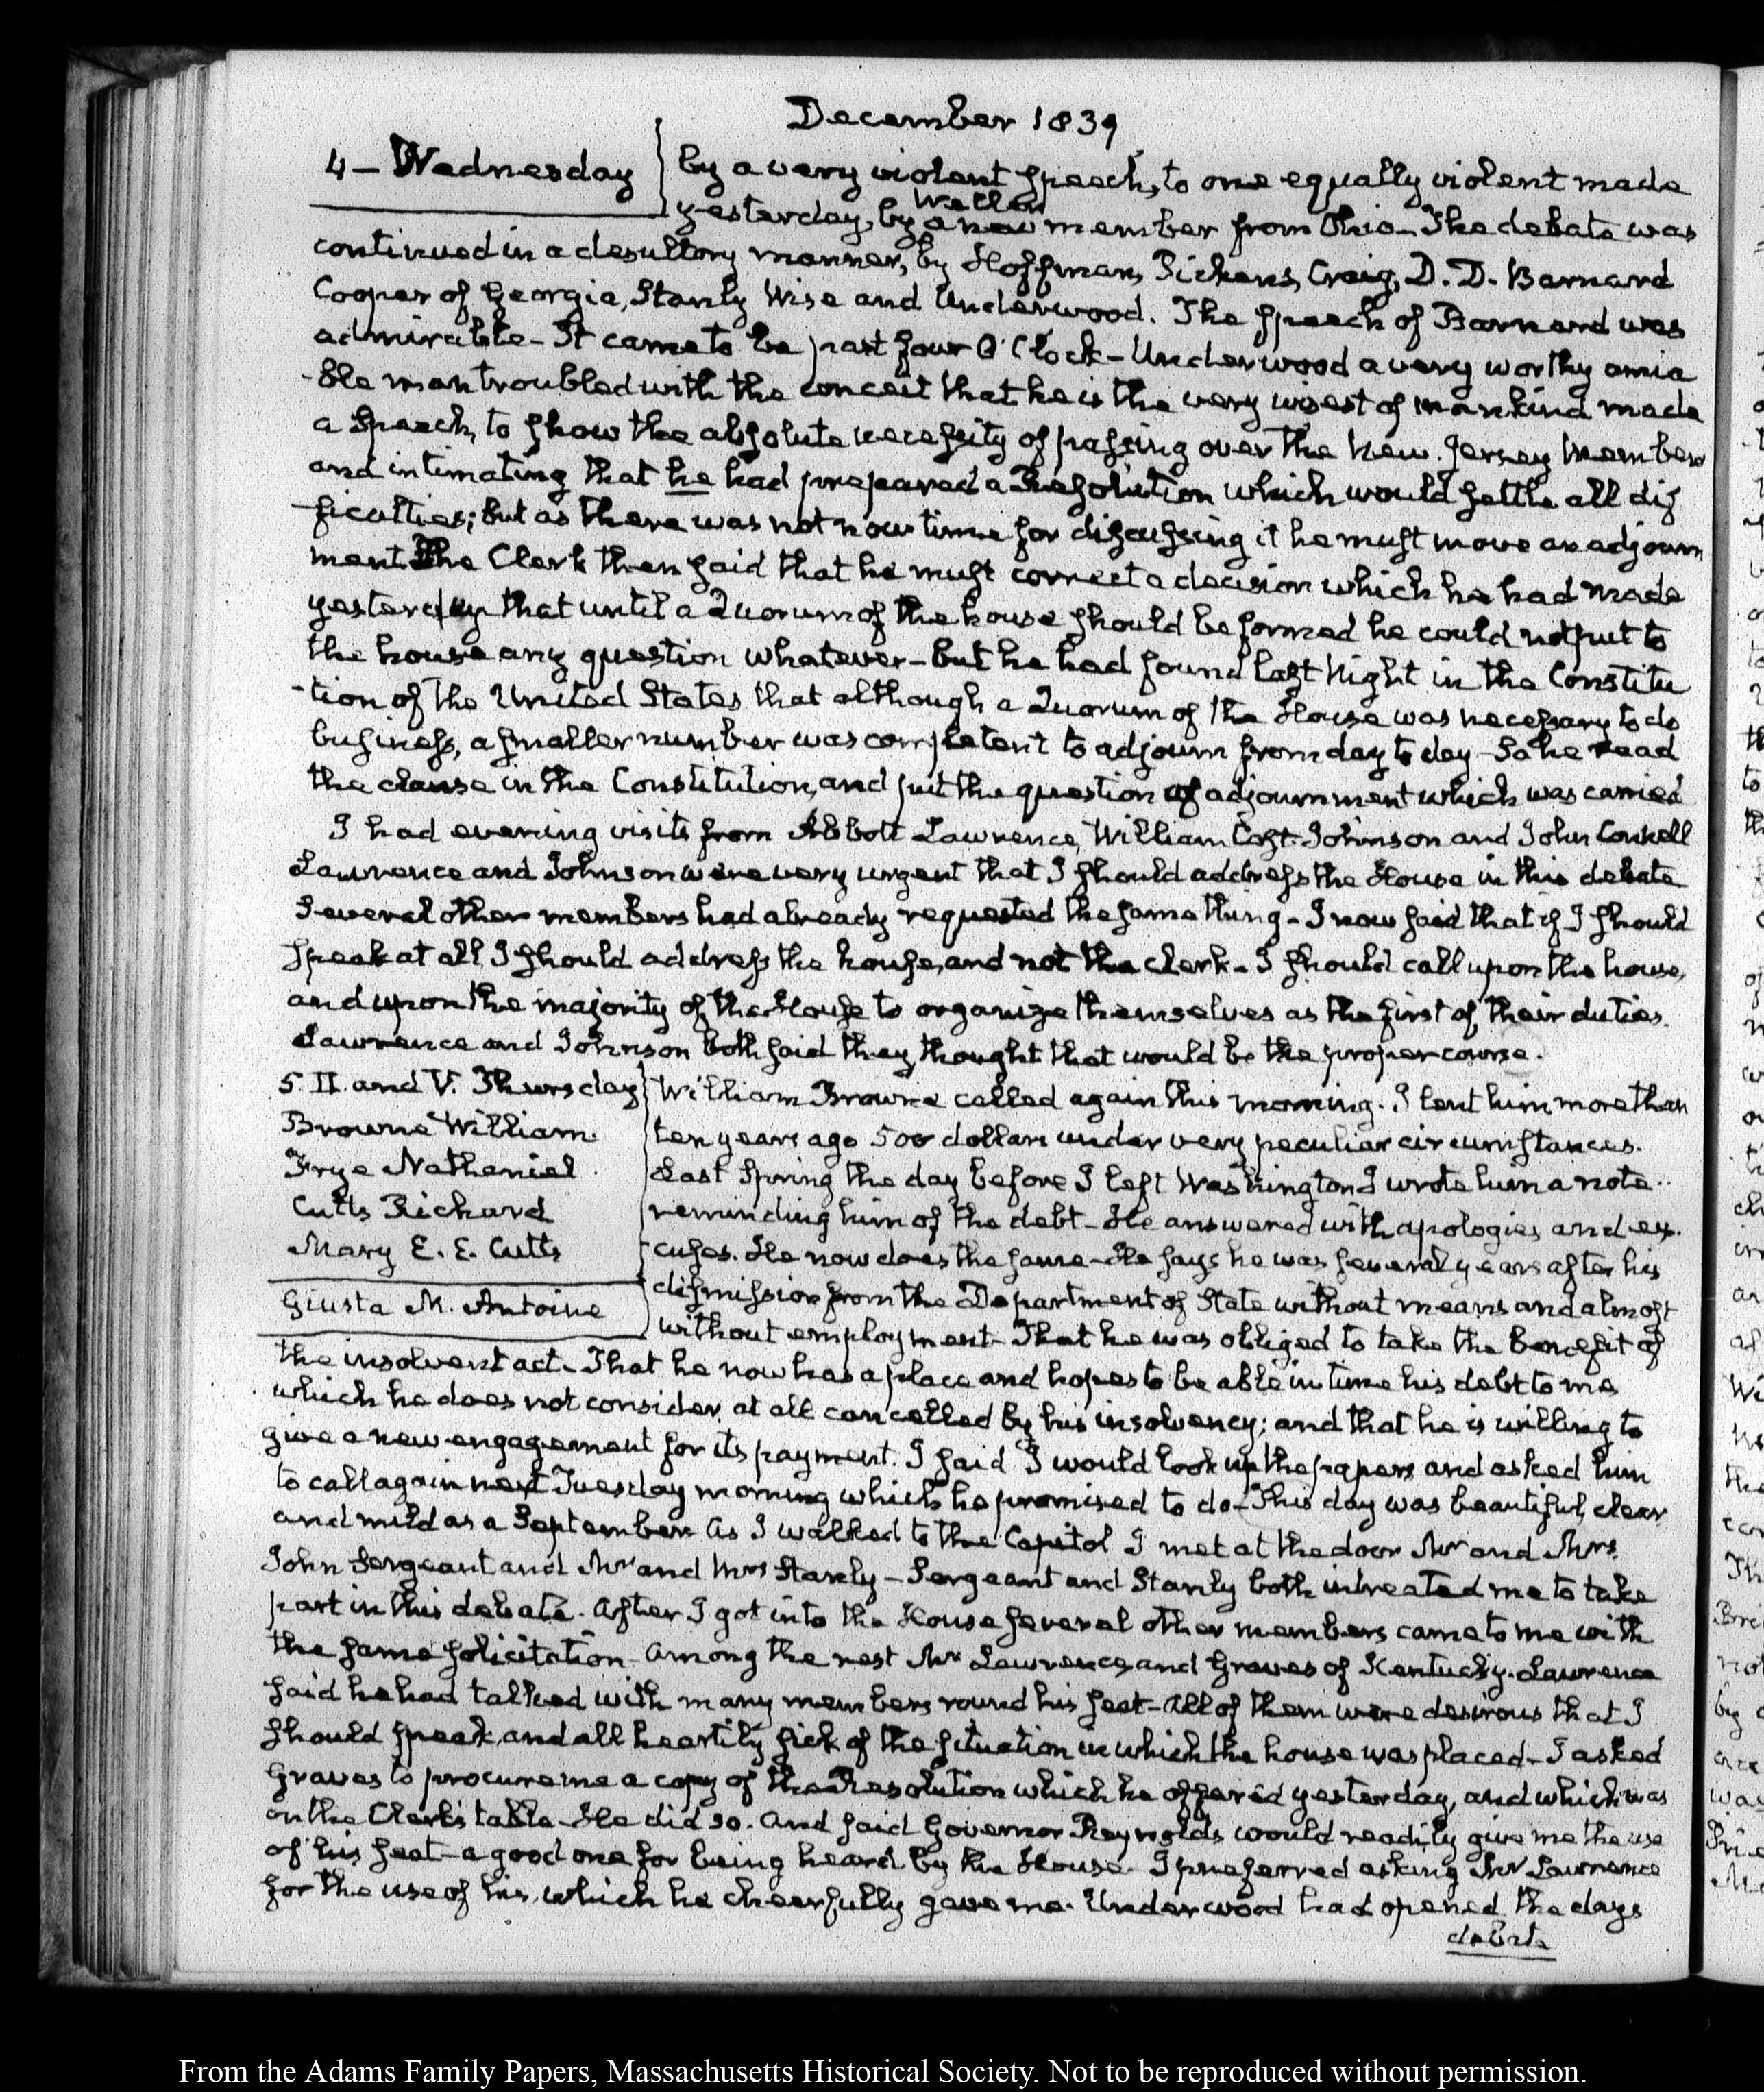 December 1839
4 – Wednesday
by a very violent speech, to one equally violent made
Weller
yesterday, by a new member from Ohio – The debate was
continued in a desultory manner, by Hoffman, Pickens, Craig, D. D. Barnard
Cooper of Georgia, Stanly Wise and Underwood. The speech of Barnard was
admirable – It came to be past four O'Clock – Underwood a very worthy amia
-ble man troubled with the conceit that he is the very wisest of mankind made
a Speech, to show the absolute necessity of passing over the New Jersey Members
and intimating that he had prepared a Resolution which would settle all dif
-ficulties; but as there was not now time for discussing it he must move an adjourn
ment The Clerk then said that he must correct a decision which he had made
yesterday that until a Quorum of the house should be formed he could not put to
the house any question whatever – but he had found last Night in the Constitu
-tion of the United States that although a Quorum of the House was necessary to do
business, a smaller number was competent to adjourn from day to day – So he read
the clause in the Constitution, and put the question of adjournment which was carried
I had evening visits from Abbott Lawrence, William Cost Johnson and John Conkell
Lawrence and Johnson were very urgent that I should address the House in this debate
Several other members had already requested the same thing – I now said that if I should
speak at all I should address the house, and not the clerk – I should call upon the house,
and upon the majority of the House to organize themselves as the first of their duties.
Lawrence and Johnson both said they thought that would be the proper course.
5. II. and V. Thursday
Browne William
Frye Nathaniel
Cutts Richard
Mary E. E. Cutts
Giusta M. Antoine
William Browne called again this morning. I lent him more than
ten years ago 500 dollars under very peculiar circumstances.
Last Spring the day before I left Washington I wrote him a note
reminding him of the debt – He answered with apologies and ex-
cuses. He now does the same – He says he was several years after his
dismission from the Department of State without means and almost
without employment – That he was obliged to take the benefit of
the insolvent act – That he now has a place and hopes to be able in time his debt to me
which he does not consider at all cancelled by his insolvency; and that he is willing to
give a new engagement for its payment. I said I would look up the papers and asked him
to call again next Tuesday morning which he promised to do – This day was beautiful, clear
and mild as a September. As I walked to the Capitol I met at the door Mr and Mrs
John Sergeant and Mr and Mrs Stanly – Sergeant and Stanly both intreated me to take
part in this debate. After I got into the House several other members came to me with
the same solicitation – Among the rest Mr Lawrence, and Graves of Kentucky. Lawrence
said he had talked with many members round his seat – All of them were desirous that I
should speak, and all heartily sick of the situation in which the house was placed – I asked
Graves to procure me a copy of the Resolution which he offered yesterday, and which was
on the Clerk's table – He did so. And said Governor Reynolds would readily give me the use
of his seat – a good one for being heard by the House. I preferred asking Mr Lawrence
for the use of his, which he cheerfully gave me. Underwood had opened the days
debate
From the Adams Family Papers, Massachusetts Historical Society. Not to be reproduced without permission.